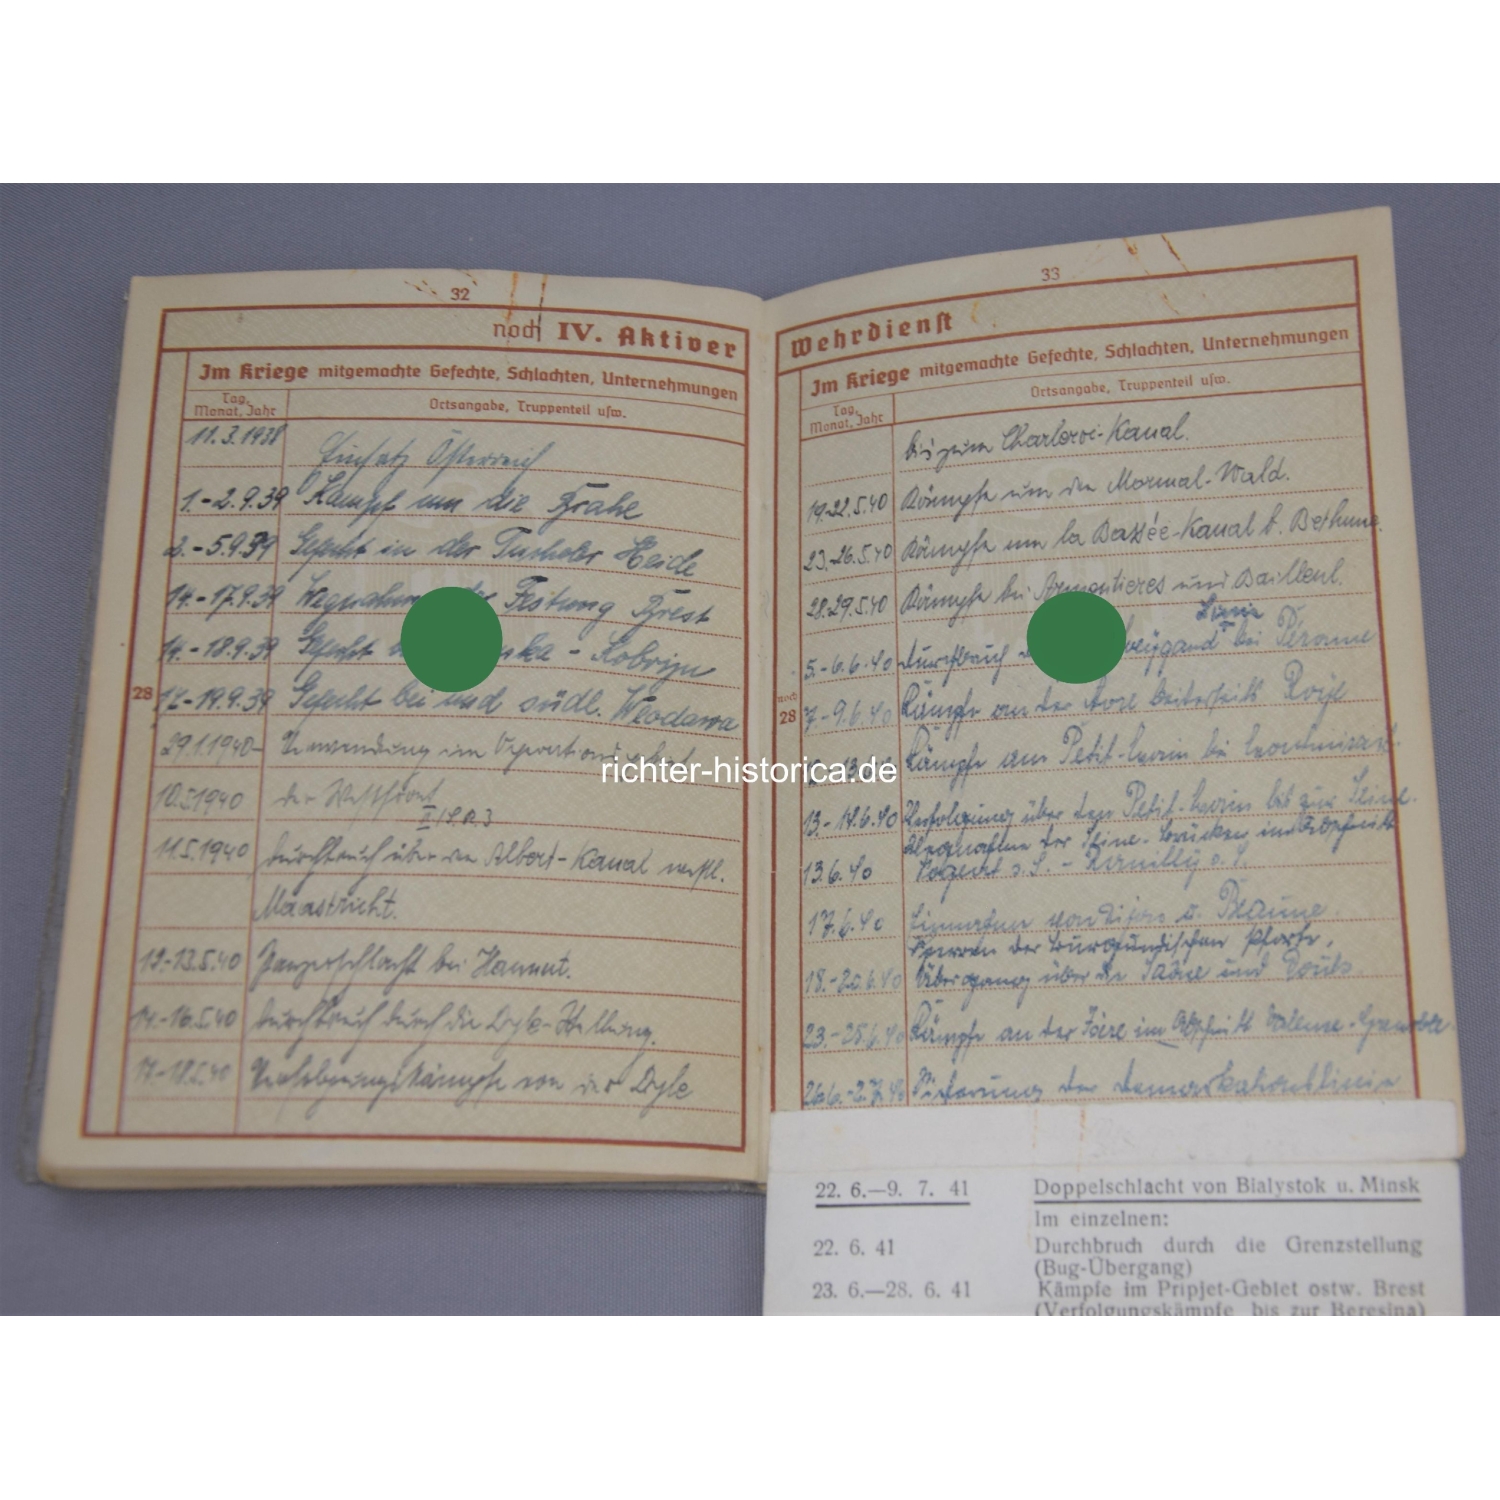 32
noch IV. Aktiver
Im Kriege mitgemachte Gefechte, Schlachten, Unternehmungen
Tag, Monat, Jahr
Ortsangabe, Truppenteil usw.
11.3.1938 Einsatz Österreich
1.-2.9.39 Kampf um die Brahe
2.-5.9.39 Gefecht in der Tucheler Heide
14.-17.9.39 Wegnahme der Festung Brest
14.-18.9.39 Gefecht - Kobryn
28
17.-19.9.39 Gefecht bei und südl. Wlodawa
29.1.1940- Verwendung im Operationsgebiet
10.5.1940 der Westfront
11.5.1940 Durchbruch über den Albert-Kanal westl.
Maastricht.
12.-13.5.40 Panzerschlacht bei Hannut.
14.-16.5.40 Durchbruch durch die Dyle-Stellung.
17.-18.5.40 Verfolgungskämpfe von der Dyle
33
Wehrdienst
Im Kriege mitgemachte Gefechte, Schlachten, Unternehmungen
Tag, Monat, Jahr
Ortsangabe, Truppenteil usw.
bis zum Charleroi-Kanal.
19.-22.5.40 Kämpfe um den Mormal-Wald.
23.-26.5.40 Kämpfe um la Bassée-Kanal b. Bethune.
28.-29.5.40 Kämpfe bei Armentieres und Bailleul.
5.-6.6.40 Durchbruch bei Péronne
noch
28
7.-9.6.40 Kämpfe an der beiderseits Roye
Kämpfe am Petit-Morin bei
13.-14.6.40 Verfolgung über den Petit-Morin bis zur Seine.
Wegnahme der Seine-Brücken im Abschnitt
13.6.40 Nogent s.S. - Romilly s.S.
17.6.40 Einnahme von Dijon u. Beaune.
Sperren der Burgundischen Pforte,
18.-20.6.40 Übergang über die Saône und Doubs.
23.-25.6.40 Kämpfe an der Isère im Abschnitt Valence-Grenoble.
26.6.-2.7.40 Sicherung der Demarkationslinie
22. 6.—9. 7. 41 Doppelschlacht von Bialystok u. Minsk
Im einzelnen:
22. 6. 41 Durchbruch durch die Grenzstellung
(Bug-Übergang)
23. 6.—28. 6. 41 Kämpfe im Pripjet-Gebiet ostw. Brest
(Verfolgungskämpfe bis zur Beresina)
richter-historica.de